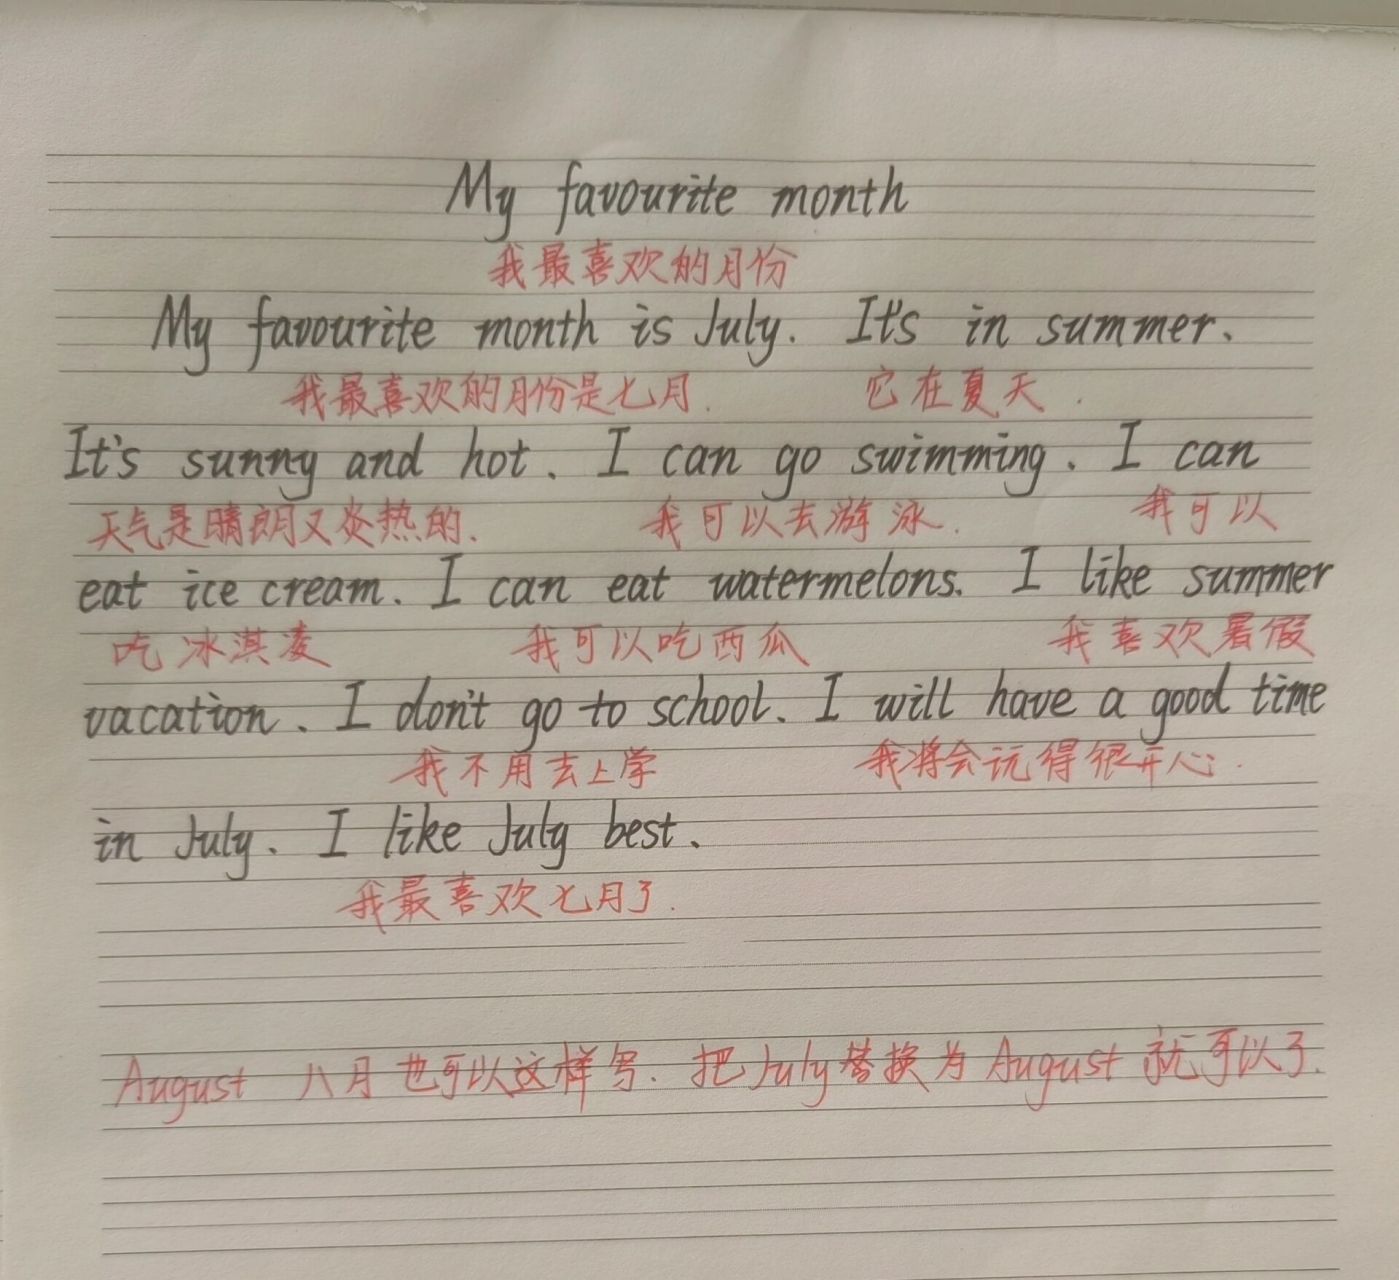 My favourite month
我最喜欢的月份
My favourite month is July. It's in summer.
我最喜欢的月份是七月. 它在夏天.
It's sunny and hot. I can go swimming. I can
天气是晴朗又炎热的. 我可以去游泳. 我可以
eat ice cream. I can eat watermelons. I like summer
吃冰淇凌 我可以吃西瓜 我喜欢暑假
vacation. I don't go to school. I will have a good time
我不用去上学 我将会玩得很开心.
in July. I like July best.
我最喜欢七月了.
August 八月也可以这样写. 把July替换为August就可以了.